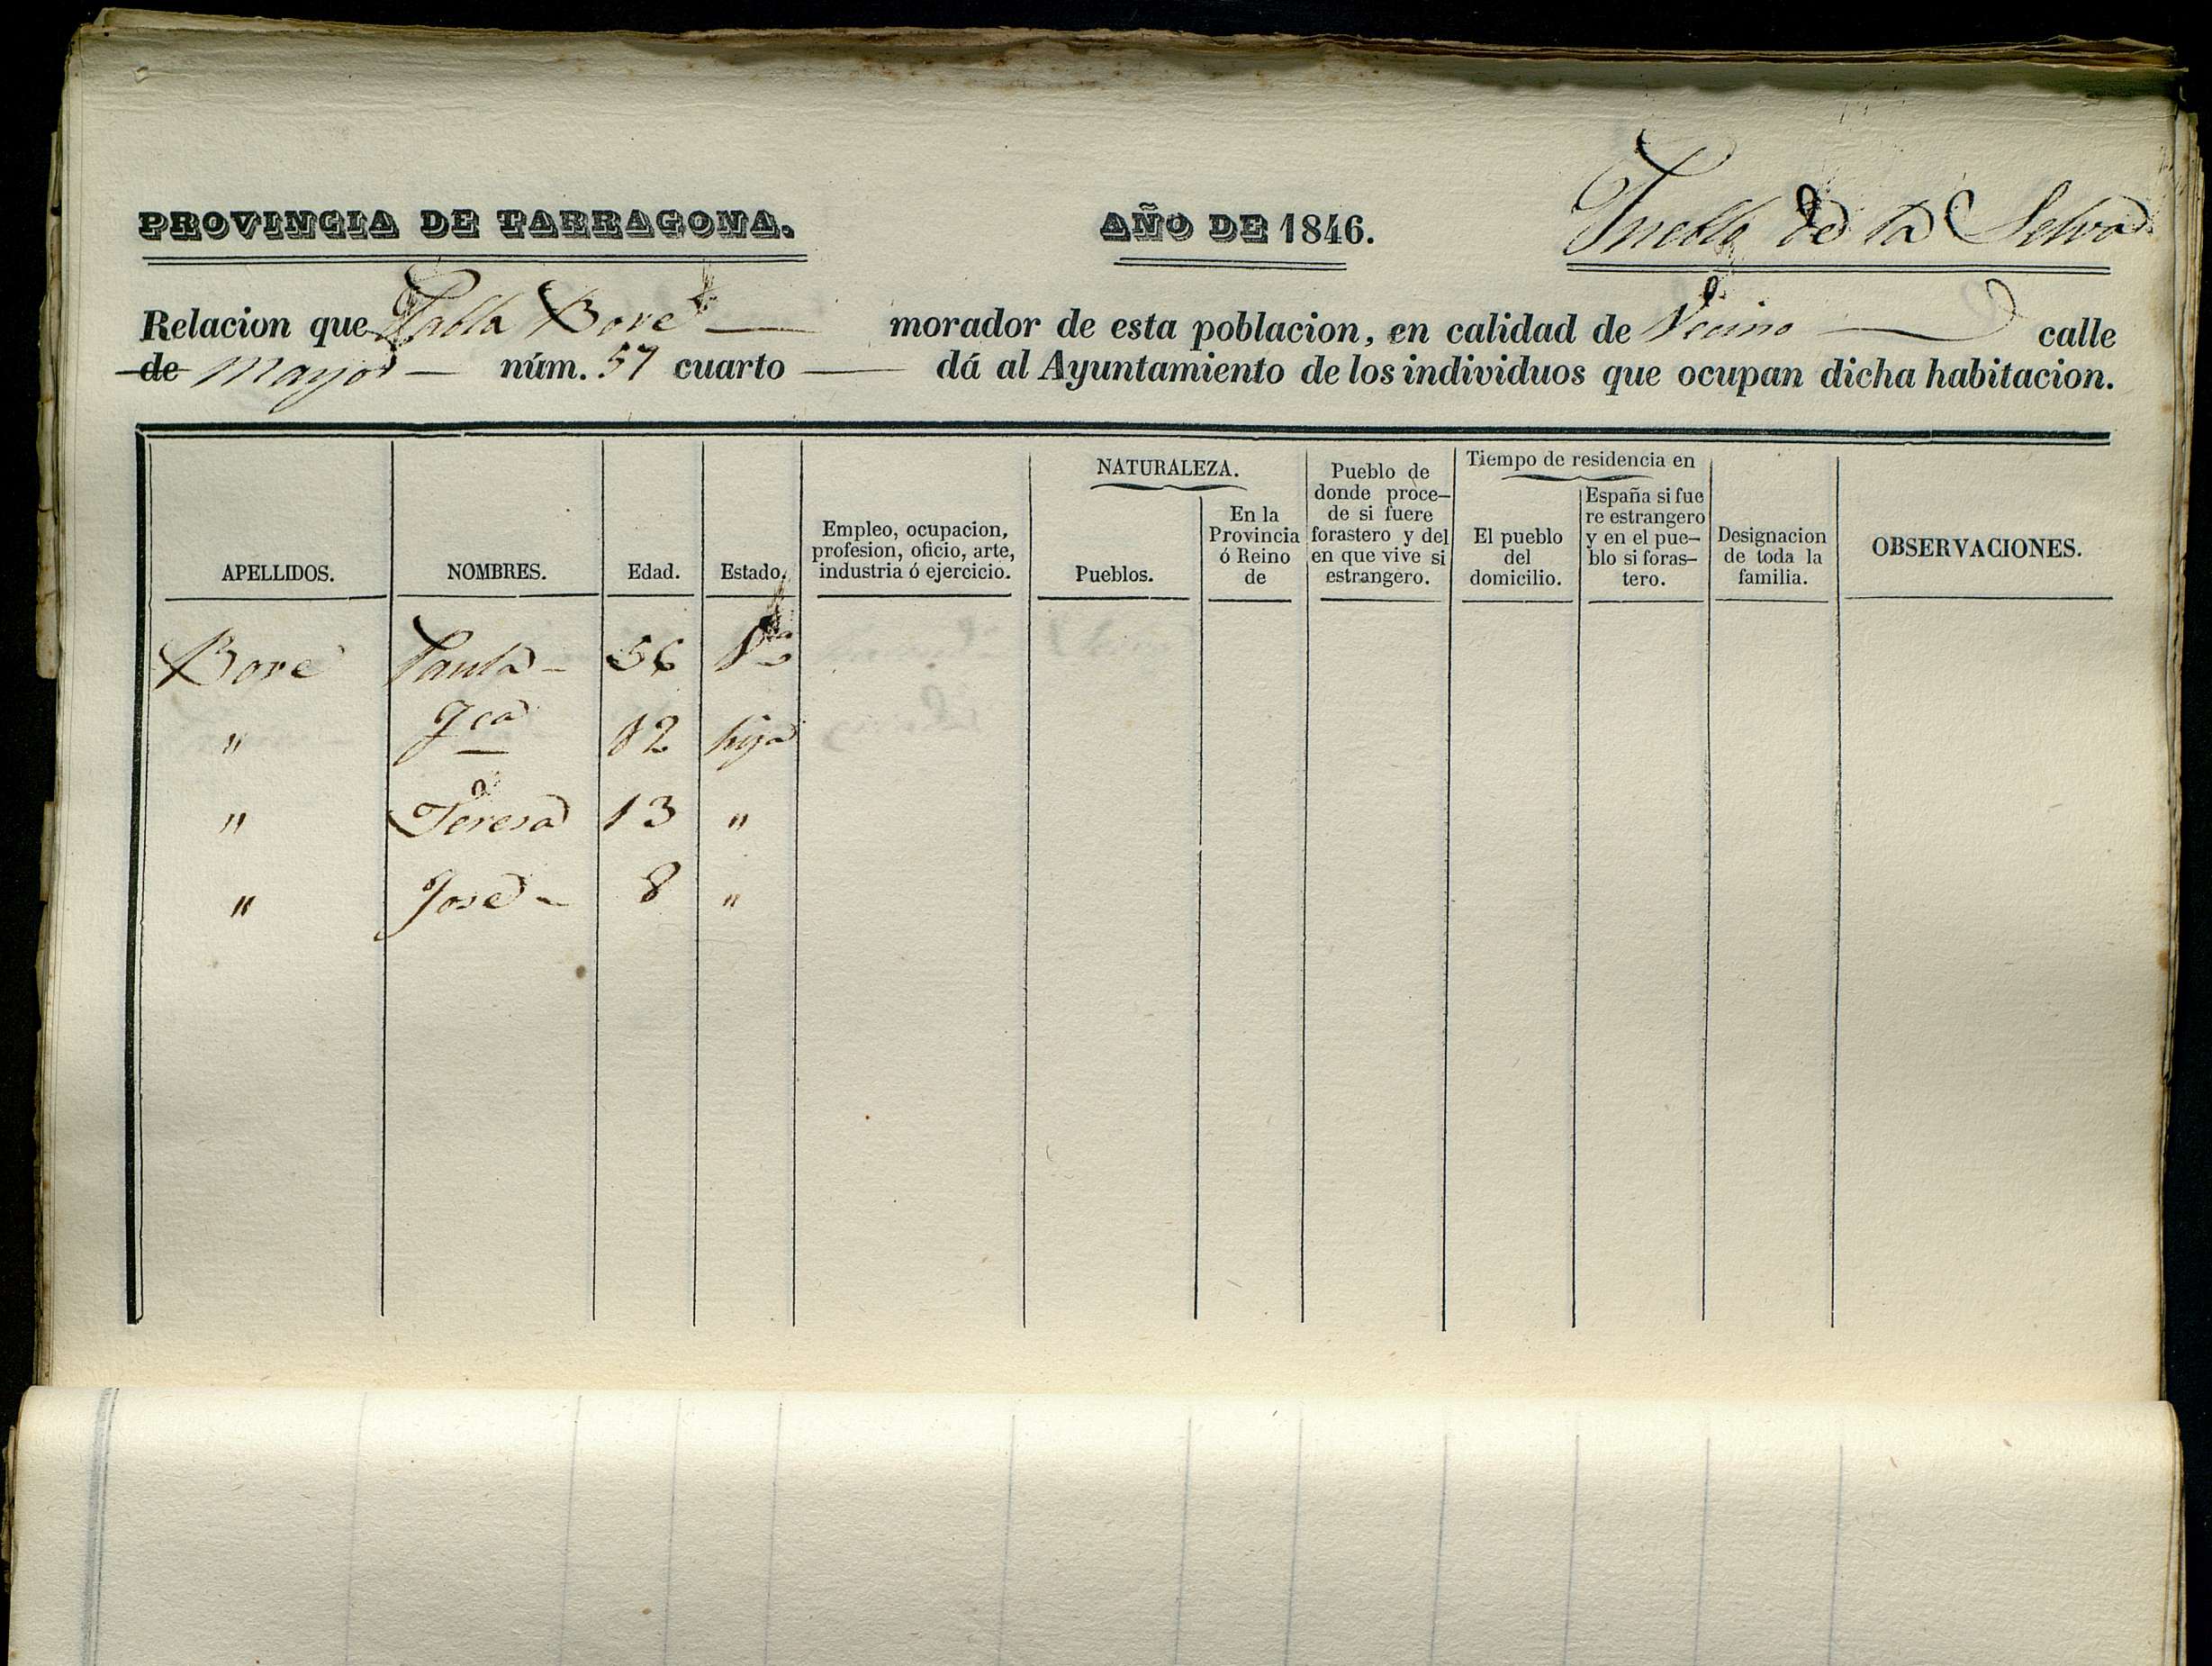 PROVINCIA DE TARRAGONA. AÑO DE 1846. Pueblo de la Selva
Relacion que Pabla Boré — morador de esta poblacion, en calidad de Vecino — calle
de Mayor — núm. 57 cuarto — dá al Ayuntamiento de los individuos que ocupan dicha habitacion.
APELLIDOS.
NOMBRES.
Edad.
Estado.
Empleo, ocupacion,
profesion, oficio, arte,
industria ó ejercicio.
NATURALEZA.
Pueblos.
En la
Provincia
ó Reino
de
Pueblo de
donde proce-
de si fuere
forastero y del
en que vive si
estrangero.
Tiempo de residencia en
El pueblo
del
domicilio.
España si fue
re estrangero
y en el pue-
blo si foras-
tero.
Designacion
de toda la
familia.
OBSERVACIONES.
Boré Paula - 56 Va
" Fca 12 hija
" Teresa 13 "
" José - 8 "